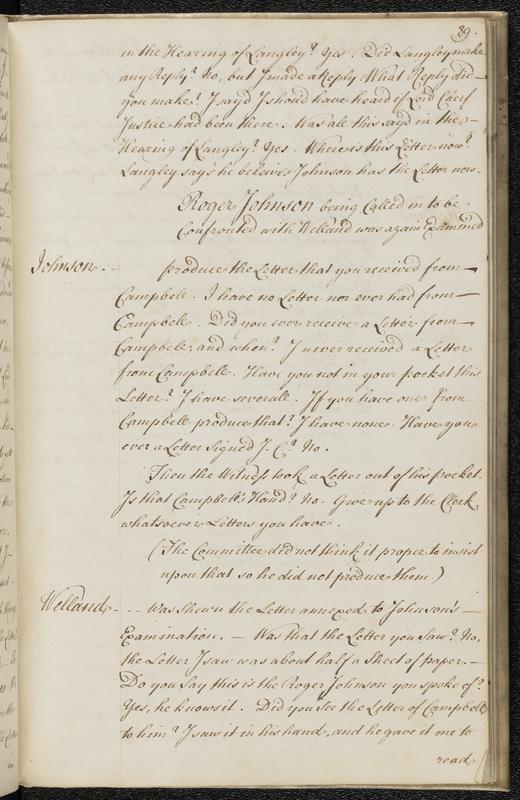 89.
in the Hearing of Langley? Yes. Did Langley make
any Reply? No, but I made a Reply What Reply did –
you make? I sayd I shoud have heard if Lord Cheif
Justice had been there. Was all this sayd in the –
Hearing of Langley? Yes. Where is this Letter now?
Langley says he beleives Johnson has the Letter now.
Roger Johnson being Called in to be
Confronted with Welland was again Examined
Johnson. – produce the Letter that you received from –
Campbell. I have no Letter nor ever had from –
Campbell. Did you ever receive a Letter from –
Campbell, and when? I never received a Letter
from Campbell. Have you not in your pocket this
Letter? I have severall. If you have one from
Campbell produce that? I have none. Have you
ever a Letter signed J. C.? No.
Then the Witness took a Letter out of his pocket.
Is that Campbell's Hand? No. Give up to the Clerk
whatsoever Letters you have.
(The Committee did not think it proper to insist
upon that so he did not produce them.)
Welland – - - was shewn the Letter annexed to Johnson's –
Examination. – Was that the Letter you saw? No,
the Letter I saw was about half a Sheet of paper. –
Do you say this is the Roger Johnson you spoke of?
Yes, he knows it. Did you see the Letter of Campbell
to him? I saw it in his hand, and he gave it me to
read